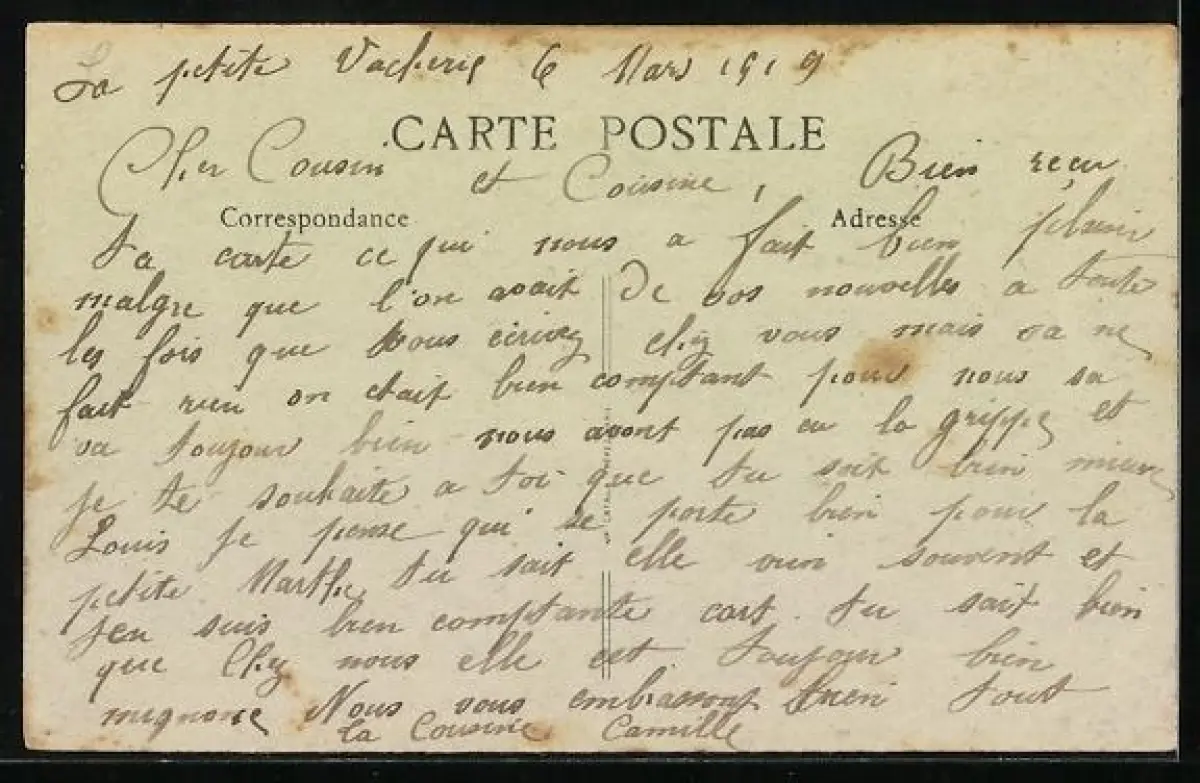 La petite Vacherie 6 Mars 1919
CARTE POSTALE
Cher Cousin et Cousine, Bien reçu
Correspondance
Adresse
ta carte ce qui nous a fait bien plaisir
malgre que l'on avait de vos nouvelles a toute
les fois que vous écrivez chez vous mais sa ne
fait rien on était bien comptant pour nous sa
va toujour bien nous avont pas eu la grippe et
je te souhaite a toi que tu soit bien mieux
Louis je pense qui se porte bien pour la
petite Marthe tu sait elle vien souvent et
jen suis bien comptante cart tu sait bien
que chez nous elle est toujour bien
mignone Nous vous embrassont bien tout
ta Cousine Camille